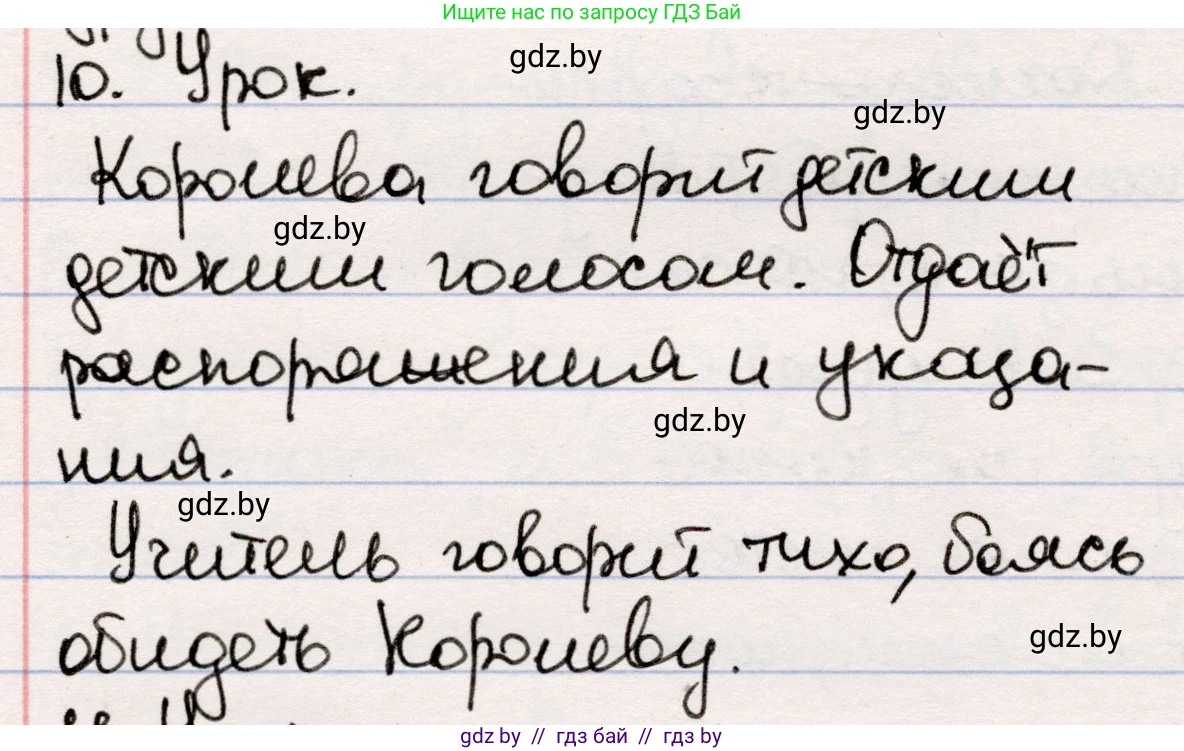 Ищите нас по запросу ГДЗ Бай
gdz.by
10. Урок.
gdz.by
Королева говорит детским
gdz.by
детским голосом. Отдаёт
распоряжения и указа-
gdz.by
ния.
gdz.by
Учитель говорит тихо, боясь
обидеть Королеву.
gdz.by
gdz.by // гдз бай // гдз by